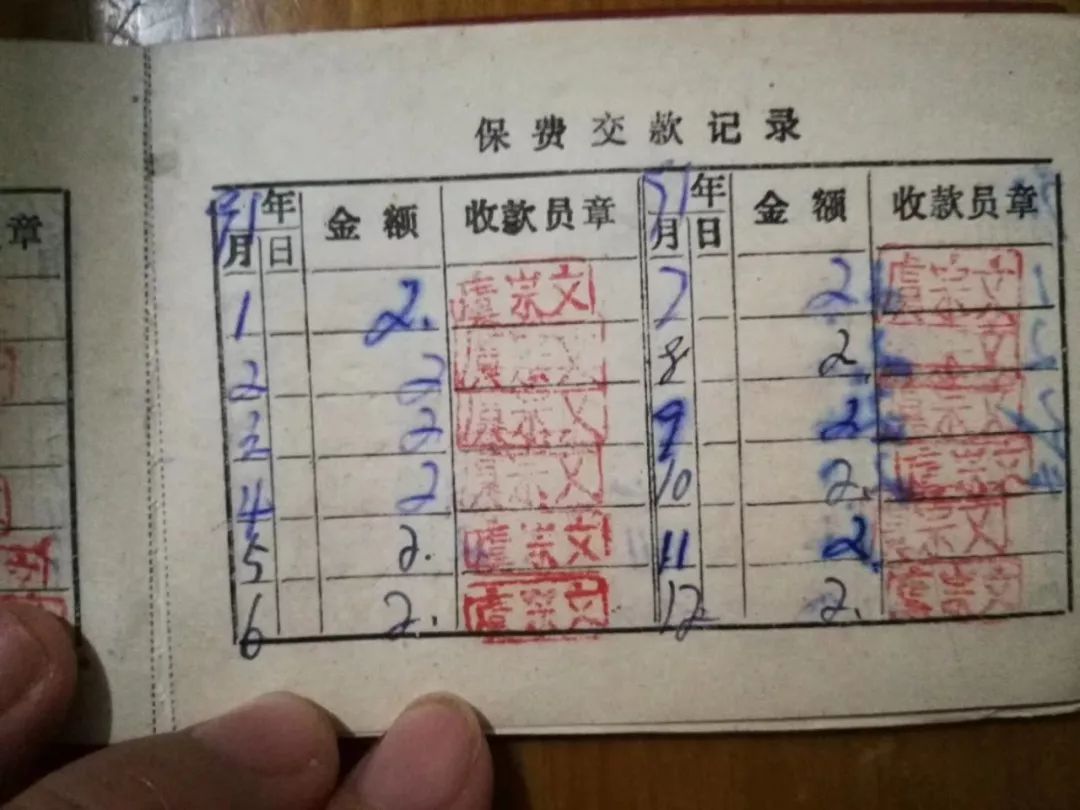 章
保费交款记录
91年 金额 收款员章 91年 金额 收款员章
月 日 月 日
1 2. 虞崇文 7 2 虞崇文
2 2 虞崇文 8 2. 文
3 2 虞崇文 9 2 虞崇文
4 2 虞崇文 10 2. 虞崇文
5 2. 虞崇文 11 2 虞崇文
6 2. 虞崇文 12 2. 虞崇文